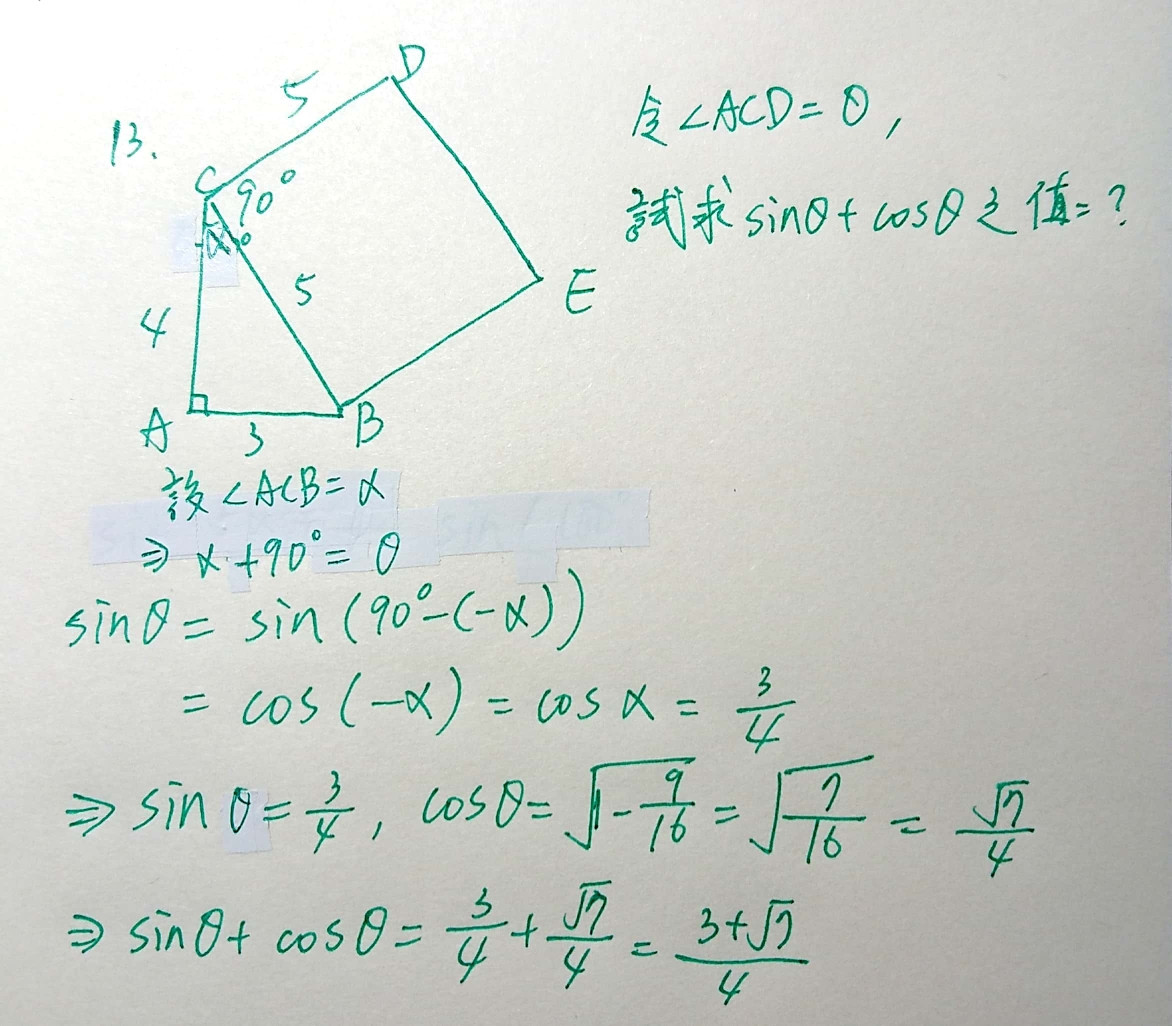 13.
5
D
C
90°
α
4
5
E
A
3
B
令∠ACD=θ,
試求sinθ+cosθ之值=?
設∠ACB=α
⇒ α+90°=θ
sinθ= sin(90°-(-α))
= cos(-α) = cosα = 3/4
⇒ sinθ= 3/4, cosθ= √(1-9/16) = √(7/16) = √7/4
⇒ sinθ+cosθ= 3/4+√7/4 = (3+√7)/4